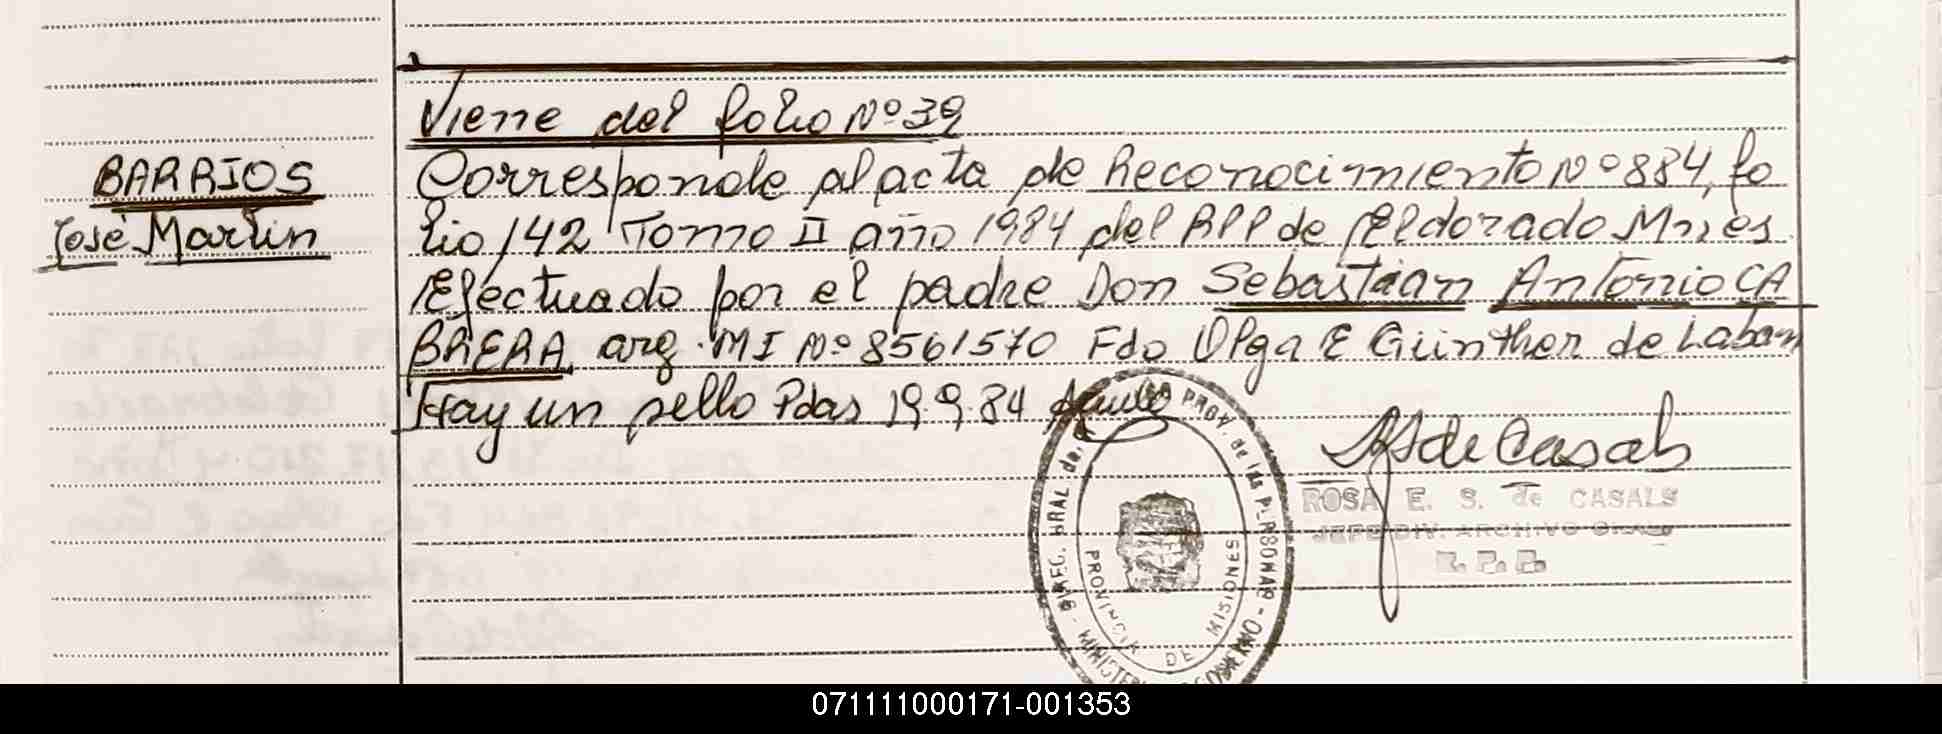 Viene del folio Nº 39
BARRIOS
José Martin
Corresponde al acta de Reconocimiento Nº 884, fo
lio 142 Tomo II año 1984 del RPP de Eldorado Mnes
Efectuado por el padre Don Sebastian Antonio CA
BRERA, arg. MI Nº 8561570 Fdo Olga E Günther de Laban
Hay un sello Pdas 19.9.84
ROSA E. S. de CASALS
JEFE DIV. ARCHIVO GRAL
R. P. P.
PROV. de las PERSONAS
PROVINCIA DE MISIONES
071111000171-001353